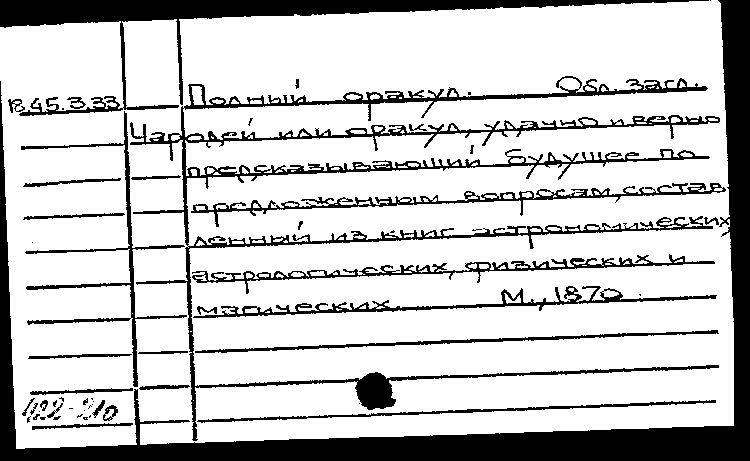 18.45.3.33 Полный оракул. Обл. загл.
Чародей или оракул, удачно и верно
предсказывающий будущее по
предложенным вопросам, состав-
ленный из книг астрономических,
астрологических, физических и
магических. М., 1870.
422-210